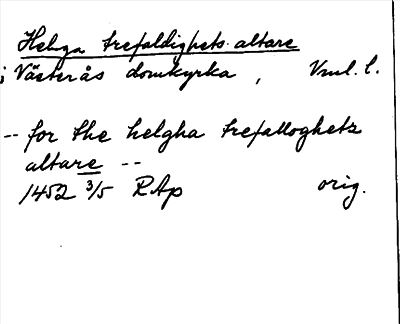 Helga trefaldighets altare
i Västerås domkyrka, Vml. l.
-- for the helgha trefalloghetz
altare --
1452 3/5 RAp orig.